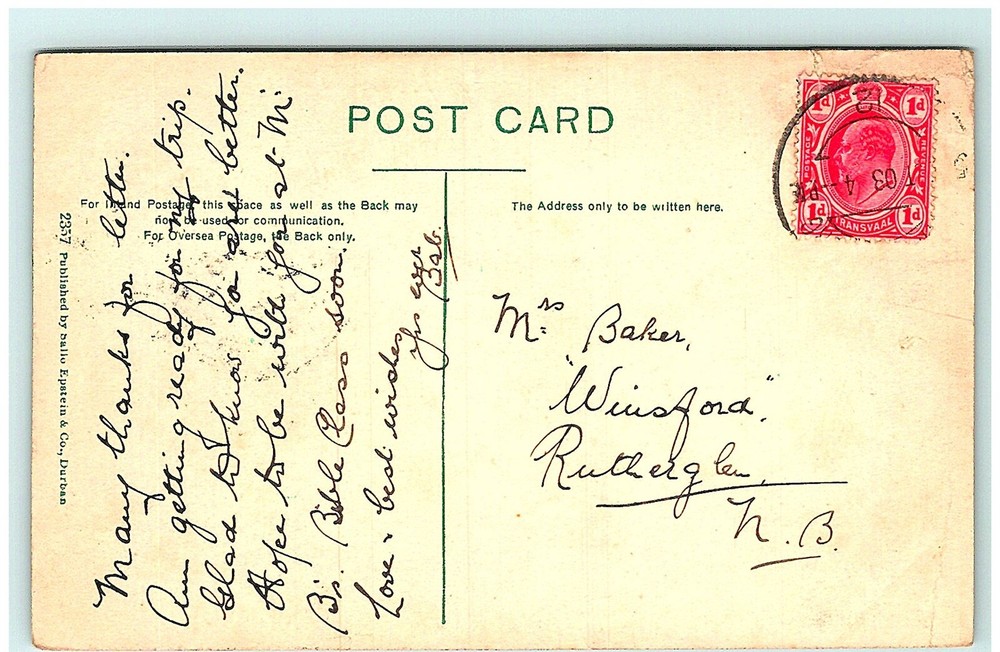 POST CARD
For Inland Postage, this space as well as the Back may
not be used for communication.
For Oversea Postage, the Back only.
The Address only to be written here.
1d 1d
POSTAGE & REVENUE
1d 1d
TRANSVAAL
Mrs Baker,
"Winsford,"
Rutherglen,
N. B.
Many thanks for letter.
Am getting ready for my trip.
Glad to know you are better.
Hope to be with you at Mr
B's. Bible Class soon.
Love & best wishes
Yrs ever
Bab.
2357 Published by Sallo Epstein & Co., Durban